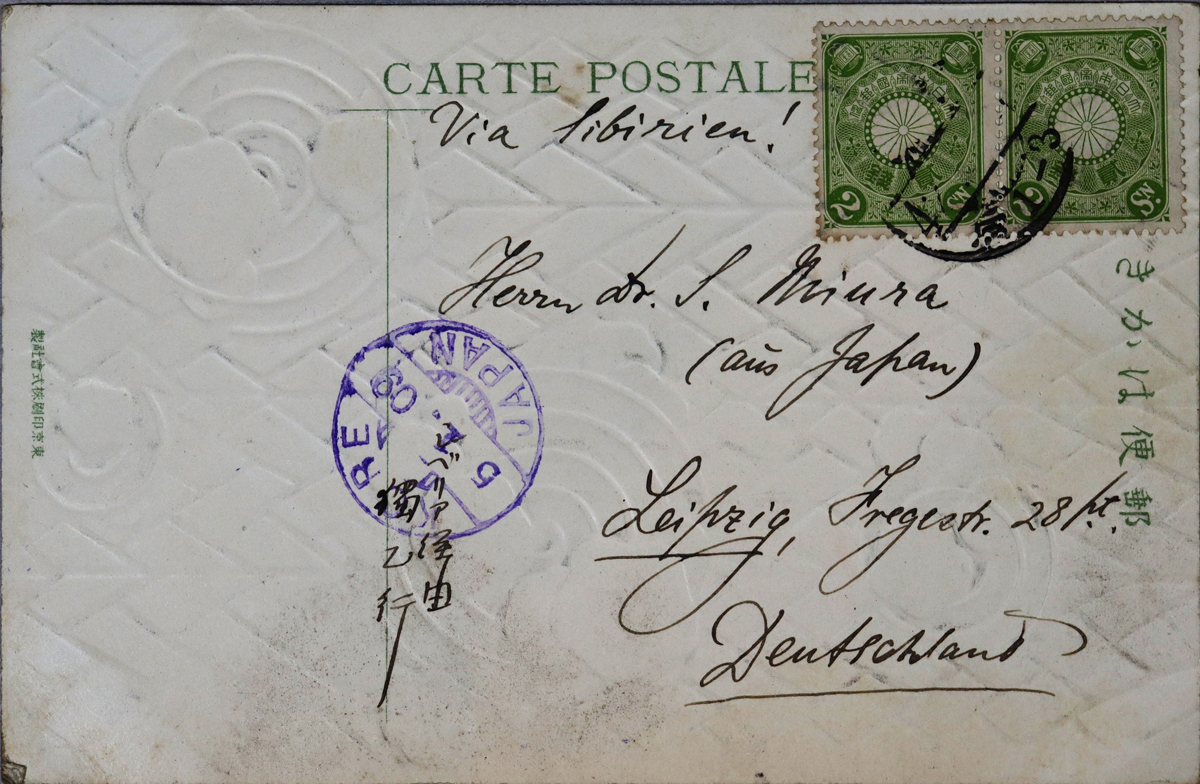 CARTE POSTALE
Via Sibirien!
Herrn Dr. S. Miura
(aus Japan)
Leipzig, Fregestr. 28 pt.
Deutschland
シベリア経由
獨乙行
郵便はかき
東京印刷株式會社製
JAPAN
RE
5
08
2
SN.
2
SN.
4